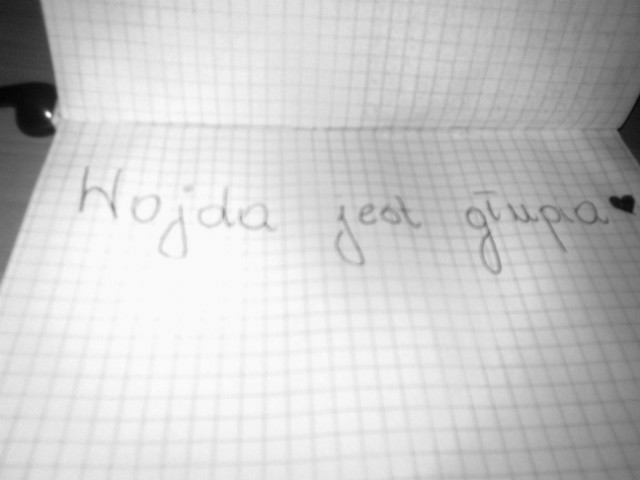 Wojda jest głupia♥